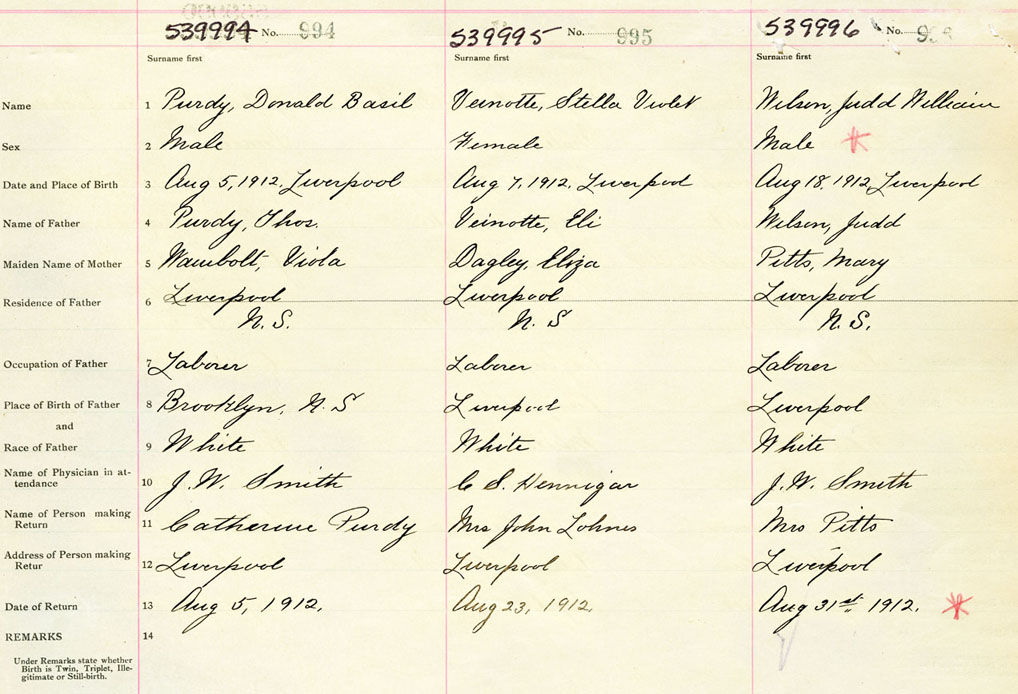 539994 No. 994 539995 No. 995 539996 No.
Surname first Surname first Surname first
Name 1 Purdy, Donald Basil Veinotte, Stella Violet Wilson, Judd William
Sex 2 Male Female Male
Date and Place of Birth 3 Aug 5, 1912, Liverpool Aug 7, 1912, Liverpool Aug 18, 1912 Liverpool
Name of Father 4 Purdy, Thos. Veinotte, Eli Wilson, Judd
Maiden Name of Mother 5 Wambolt, Viola Dagley, Eliza Pitts, Mary
Residence of Father 6 Liverpool Liverpool Liverpool
N. S. N. S N. S.
Occupation of Father 7 Laborer Laborer Laborer
Place of Birth of Father 8 Brooklyn, N. S Liverpool Liverpool
and
Race of Father 9 White White White
Name of Physician in at-
tendance 10 J. W. Smith C S. Hennigar J. W. Smith
Name of Person making
Return 11 Catherine Purdy Mrs John Lohnes Mrs Pitts
Address of Person making
Retur 12 Liverpool Liverpool Liverpool
Date of Return 13 Aug 5, 1912. Aug 23, 1912. Aug 31st 1912.
REMARKS 14
Under Remarks state whether
Birth is Twin, Triplet, Ille-
gitimate or Still-birth.